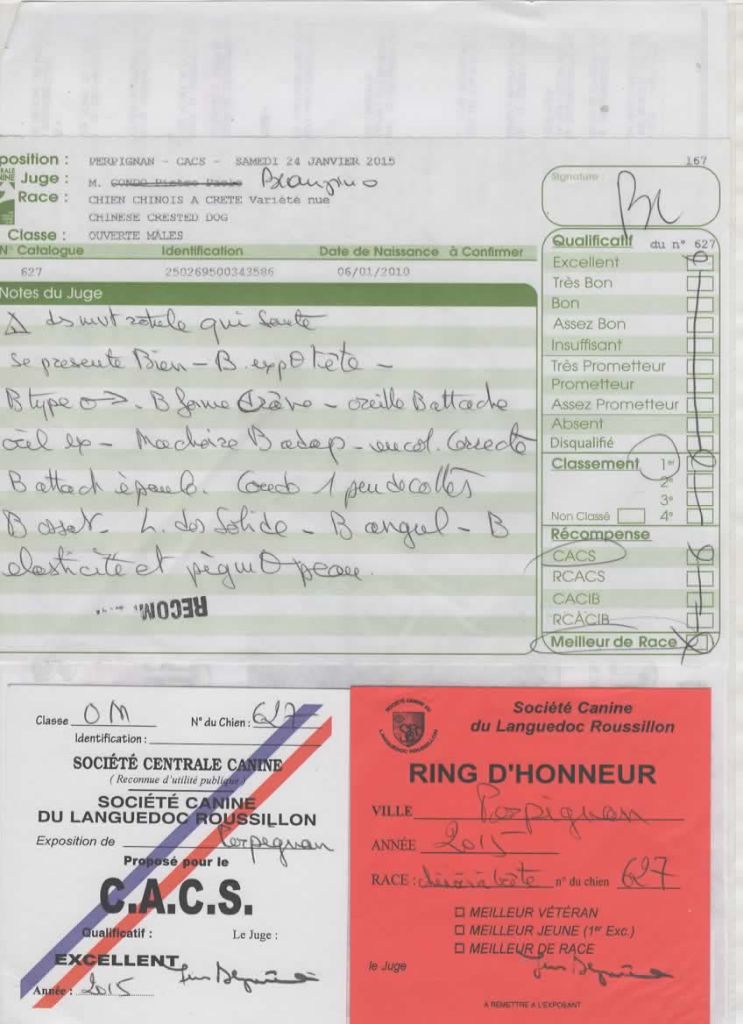 position : PERPIGNAN - CACS - SAMEDI 24 JANVIER 2015
167
Juge : M.
Race : CHIEN CHINOIS A CRETE Variété nue
CHINESE CRESTED DOG
Classe : OUVERTE MÂLES
Signature :
N° Catalogue Identification Date de Naissance à Confirmer
627 250269500343586 06/01/2010
Qualificatif du n° 627
Excellent
Très Bon
Bon
Assez Bon
Insuffisant
Très Prometteur
Prometteur
Assez Prometteur
Absent
Disqualifié
Classement 1er
2e
3e
Non Classé 4e
Récompense
CACS
RCACS
CACIB
RCACIB
Meilleur de Race
Notes du Juge
qui saute
se presente Bien - B. tête -
B type B forme crâne - oreille B attache
œil ex - Machoire B
B attach 1 peu de collés
B L. dos Solide - B angul - B
elasticité et peau.
RECOM.
Classe OM N° du Chien : 627
Identification :
SOCIÉTÉ CENTRALE CANINE
( Reconnue d'utilité publique )
SOCIÉTÉ CANINE
DU LANGUEDOC ROUSSILLON
Exposition de Perpignan
Proposé pour le
C.A.C.S.
Qualificatif : Le Juge :
EXCELLENT
Année : 2015
Société Canine
du Languedoc Roussillon
RING D'HONNEUR
VILLE Perpignan
ANNÉE 2015
RACE : n° du chien 627
MEILLEUR VÉTÉRAN
MEILLEUR JEUNE (1er Exc.)
MEILLEUR DE RACE
le Juge
A REMETTRE A L'EXPOSANT